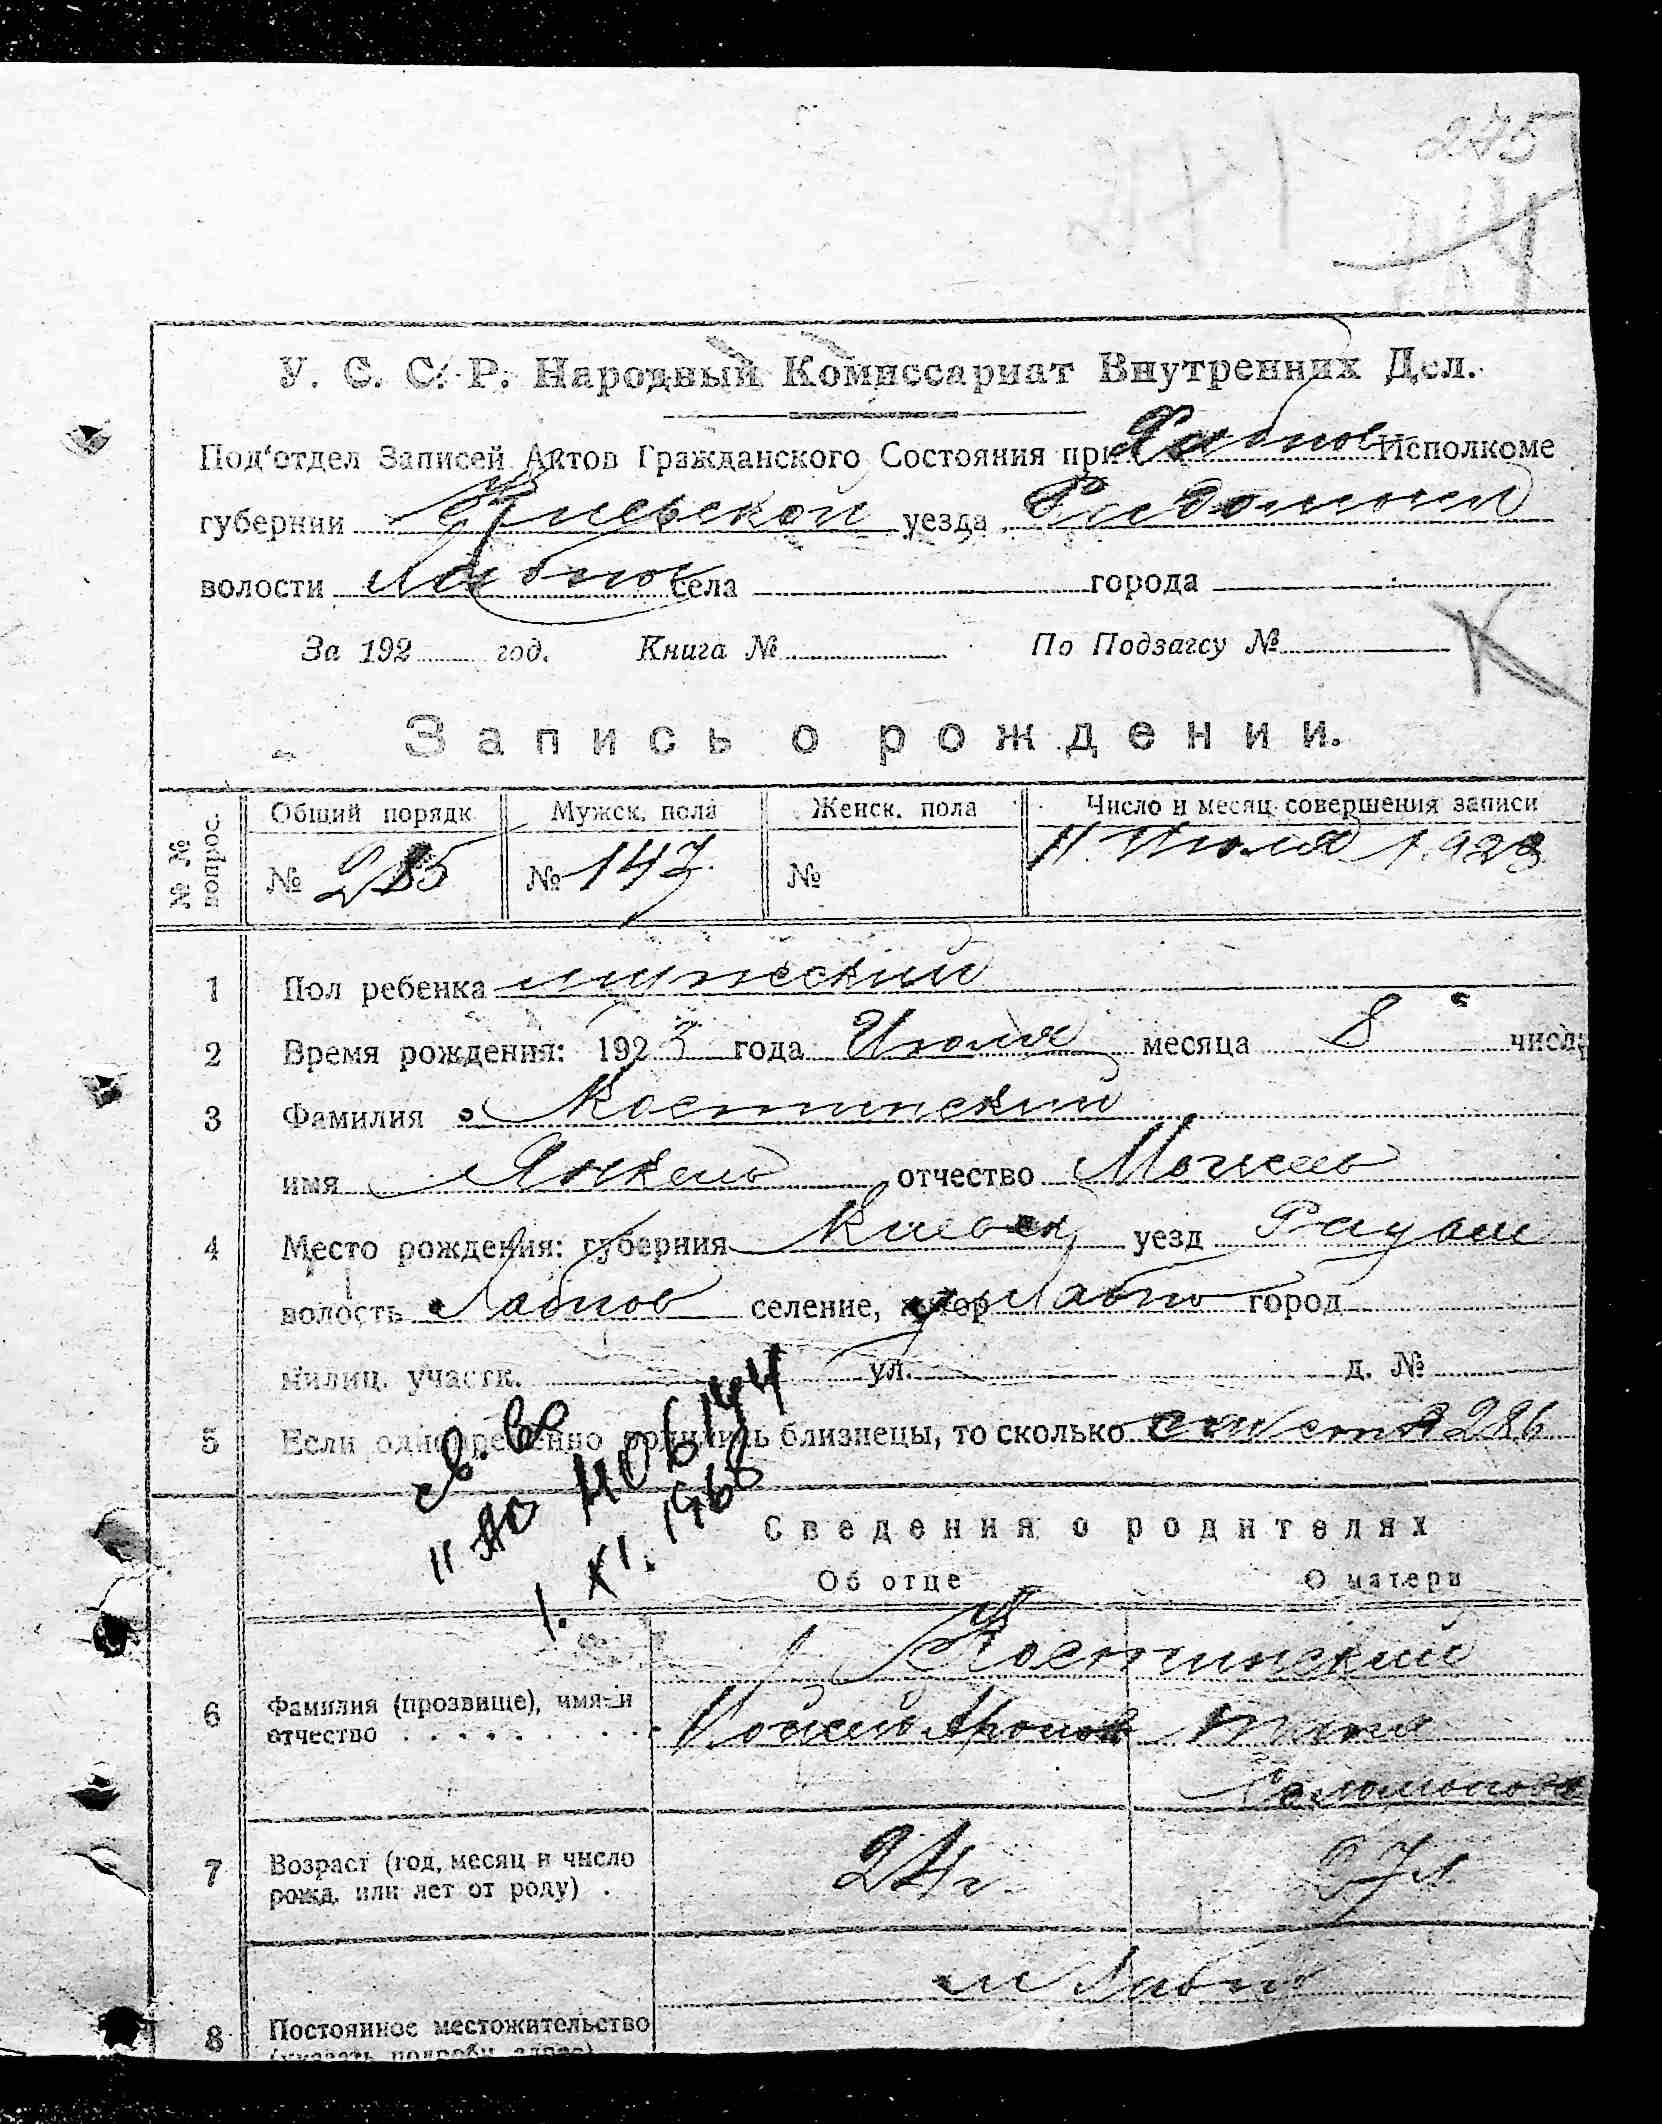 275
У. С. С. Р. Народный Комиссариат Внутренних Дел.
Под'отдел Записей Актов Гражданского Состояния при Хабнов Исполкоме
губернии Киевской уезда
волости Хабнов села города
За 192 год. Книга № По Подзагсу №
К
Запись о рождении.
№ № вопрос. Общий порядк Мужск. пола Женск. пола Число и месяц совершения записи
№ 285 № 147 № 11 Июля 1923
1 Пол ребенка мужеский
2 Время рождения: 1923 года Июля месяца 8 числа
3 Фамилия Костинский
имя Янкель отчество
4 Место рождения: губерния Киевск уезд Радом
волость Хабнов селение, хутор Хабно город
милиц. участк. ул. д. №
5 Если одновременно родились близнецы, то сколько 286
1. XI. 1968
Сведения о родителях
Об отце О матери
Костинский
6 Фамилия (прозвище), имя и
отчество Аронов
7 Возраст (год, месяц и число
рожд. или лет от роду) 24 г. 27 л
м Хабно
8 Постоянное местожительство
(указать подробн. адрес)